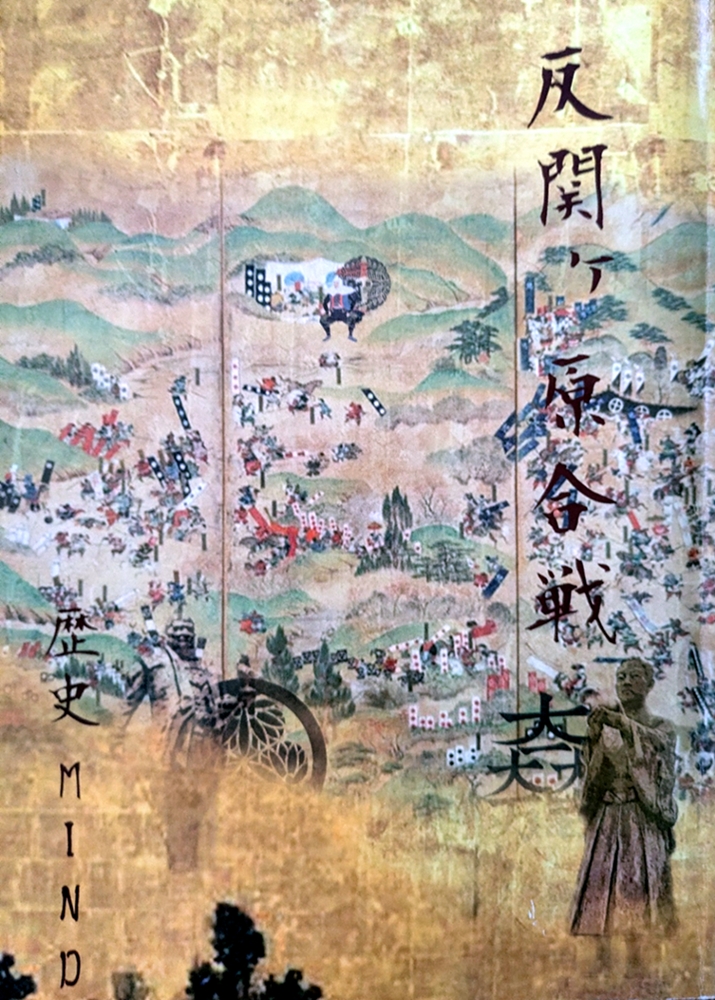 反関ヶ原合戦
歴史MIND